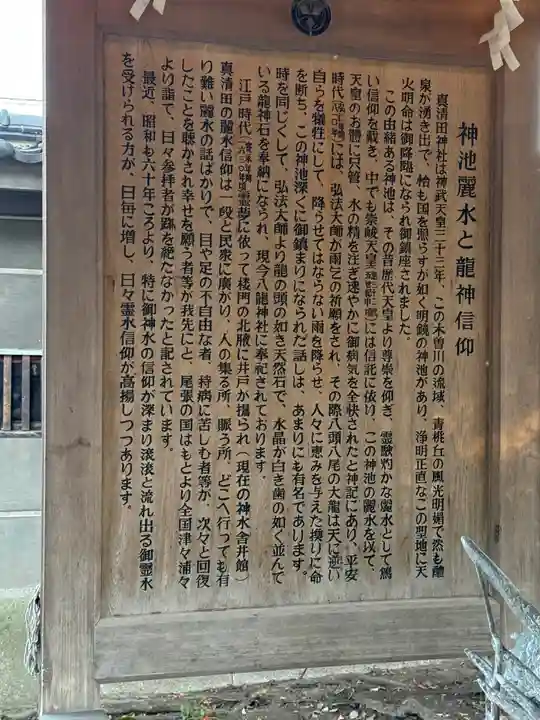 神池麗水と龍神信仰
真清田神社は神武天皇三十三年、この木曽川の流域、青桃丘の風光明媚で然も醴
泉が湧き出で、恰も国を照らすが如く明鏡の神池があり、浄明正直なこの聖地に天
火明命は御降臨になられ御鎮座されました。
この由緒ある神池は、その昔歴代天皇より尊崇を仰ぎ、霊験灼かな麗水として篤
い信仰を戴き、中でも崇峻天皇には信託に依り、この神池の麗水を以て、
天皇のお體に只管、水の精を注ぎ速やかに御病気を全快されたと神記にあり、平安
時代には、弘法大師が雨乞の祈願をされ、その際八頭八尾の大龍は天に逆い
自らを犠牲にして、降らせてはならない雨を降らせ、人々に恵みを与えた換りに命
を断ち、この神池深くに御鎮まりになられた話しは、あまりにも有名であります。
時を同じくして、弘法大師より龍の頭の如き天然石で、水晶が白き歯の如く並んで
いる龍神石を奉納になられ、現今八龍神社に奉祀されております。
江戸時代霊夢に依って楼門の北腋に井戸が掘られ（現在の神水舎井館）
真清田の麗水信仰は一段と民衆に廣がり、人の集る所、賑ろ所、どこへ行っても有
り難い麗水の話ばかりで、目や足の不自由な者、持病に苦しむ者等が、次々と回復
したことを聴かされ幸せを願う者等が我先にと、尾張の国はもとより全国津々浦々
より詣で、日々参拝者が跡を絶たなかったと記されています。
最近、昭和も六十年ごろより、特に御神水の信仰が深まり滾滾と流れ出る御霊水
を受けられる方が、日毎に増し、日々霊水信仰が高揚しつつあります。